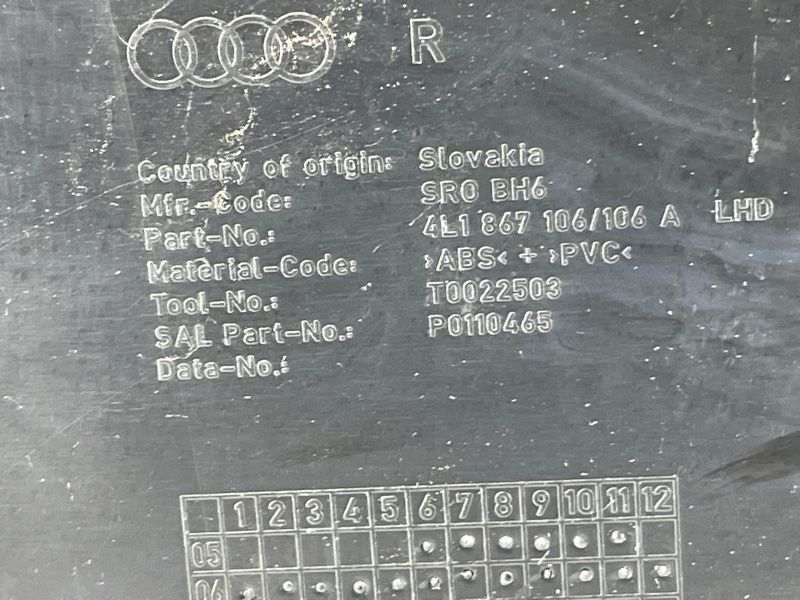 R
Country of origin: Slovakia
Mfr.-Code: SRO BH6
Part-No.: 4L1 867 106/106 A LHD
Material-Code: ›ABS‹ + ›PVC‹
Tool-No.: T0022503
SAL Part-No.: P0110465
Data-No.:
1 2 3 4 5 6 7 8 9 10 11 12
05
06